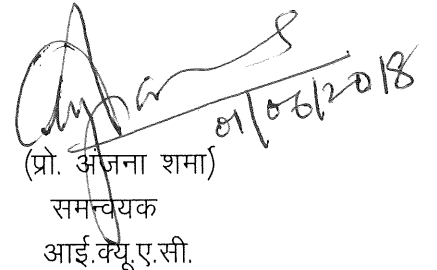 01/06/2018
(प्रो. अंजना शर्मा)
समन्वयक
आई.क्यू.ए.सी.